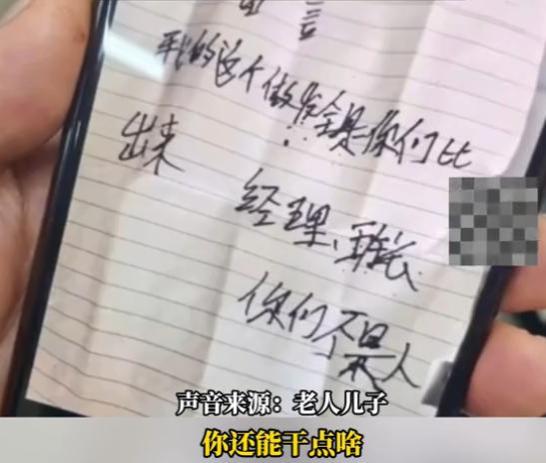 言
我的这个做法全是你们比
出来
经理、班长
你们不是人
声音来源：老人儿子
你还能干点啥